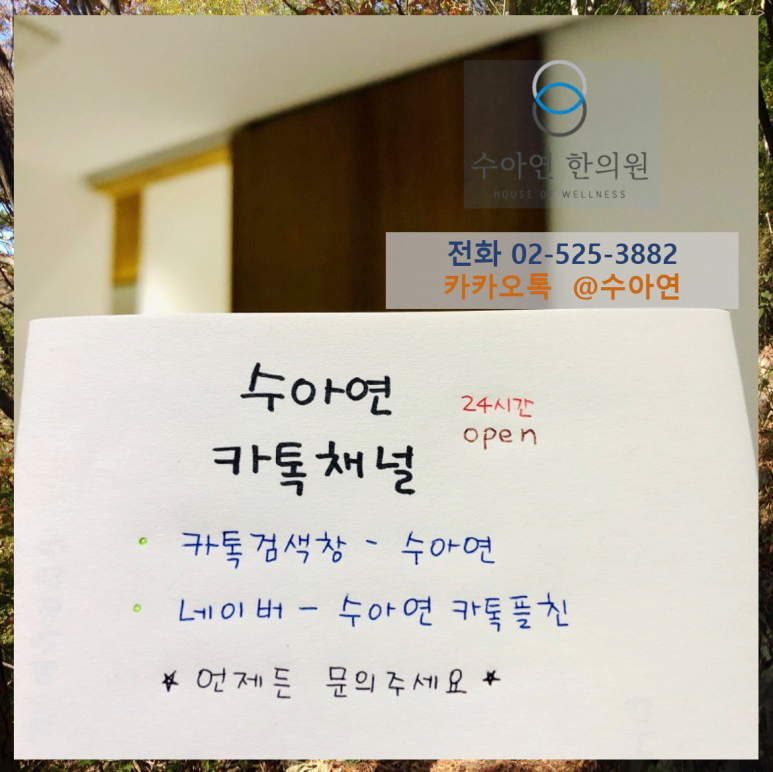 수아연 한의원
HOUSE OF WELLNESS
전화 02-525-3882
카카오톡 @수아연
수아연
24시간
open
카톡채널
카톡검색창 - 수아연
네이버 - 수아연 카톡플친
* 언제든 문의주세요 *